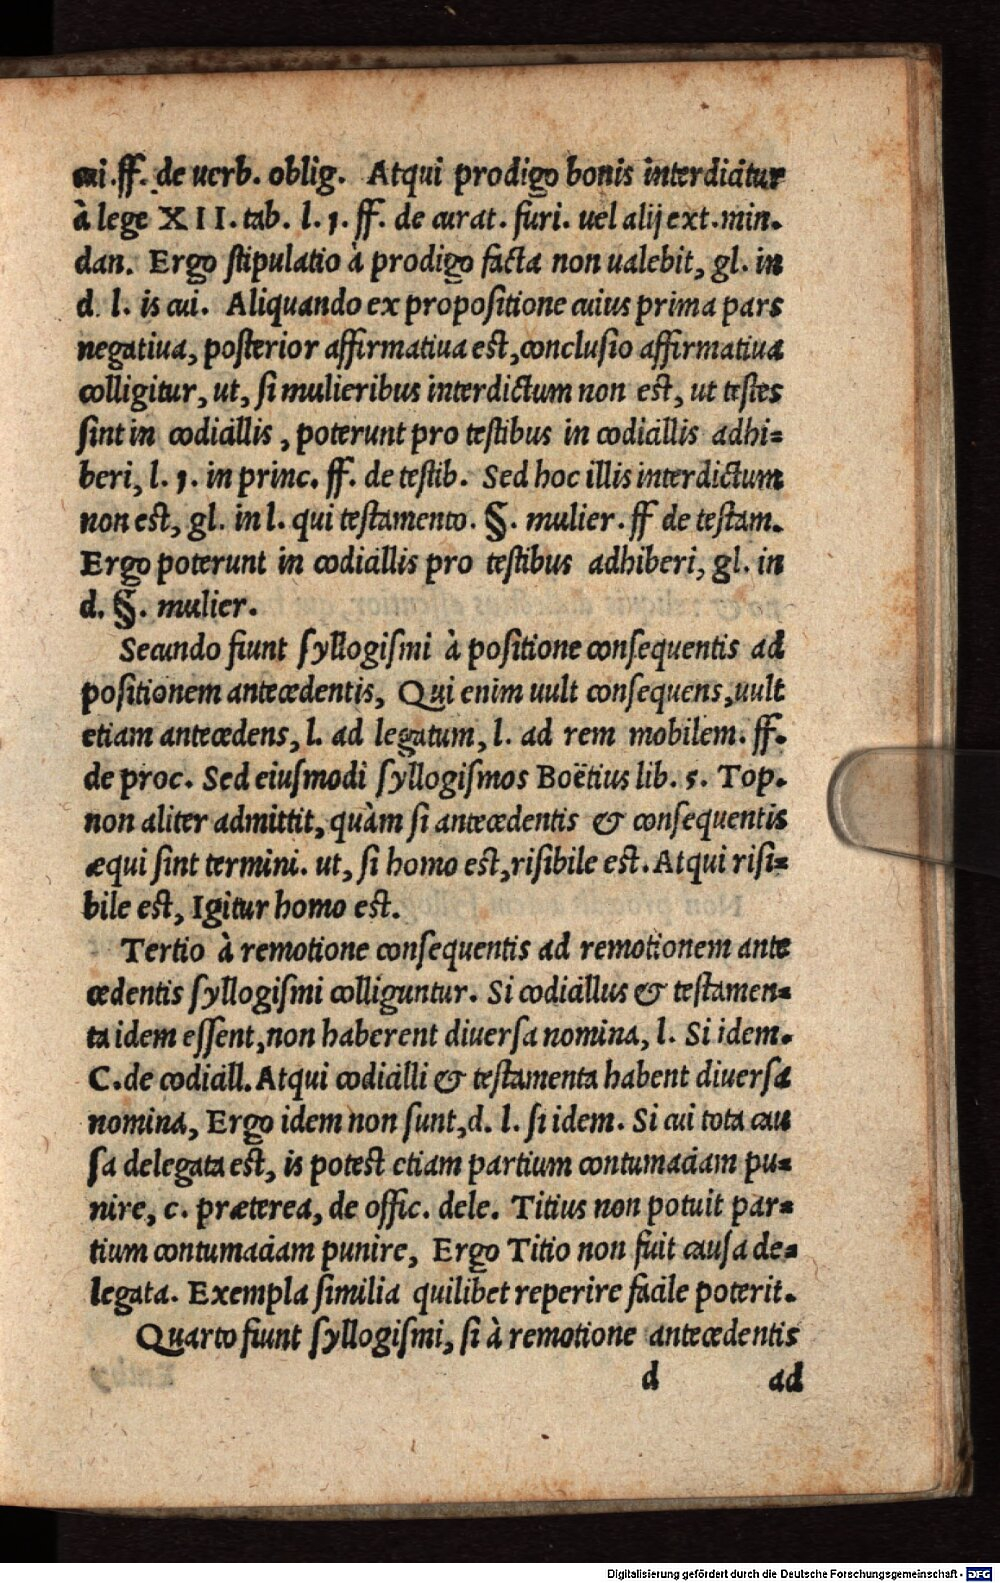 cui.ff. de uerb. oblig. Atqui prodigo bonis interdicitur
à lege XII. tab. l. 1. ff. de curat. furi. uel alij ext. min.
dan. Ergo stipulatio à prodigo facta non ualebit, gl. in
d. l. is cui. Aliquando ex propositione cuius prima pars
negatiua, posterior affirmatiua est, conclusio affirmatiua
colligitur, ut, si mulieribus interdictum non est, ut testes
sint in codicillis, poterunt pro testibus in codicillis adhi=
beri, l. 1. in princ. ff. de testib. Sed hoc illis interdictum
non est, gl. in l. qui testamento. §. mulier. ff de testam.
Ergo poterunt in codicillis pro testibus adhiberi, gl. in
d. §. mulier.
Secundo fiunt syllogismi à positione consequentis ad
positionem antecedentis, Qui enim uult consequens, uult
etiam antecedens, l. ad legatum, l. ad rem mobilem. ff.
de proc. Sed eiusmodi syllogismos Boëtius lib. 5. Top.
non aliter admittit, quàm si antecedentis & consequentis
æqui sint termini. ut, si homo est, risibile est. Atqui risi=
bile est, Igitur homo est.
Tertio à remotione consequentis ad remotionem ante
cedentis syllogismi colliguntur. Si codicillus & testamen=
ta idem essent, non haberent diuersa nomina, l. Si idem.
C. de codicill. Atqui codicilli & testamenta habent diuersa
nomina, Ergo idem non sunt, d. l. si idem. Si cui tota cau
sa delegata est, is potest etiam partium contumaciam pu=
nire, c. præterea, de offic. dele. Titius non potuit par=
tium contumaciam punire, Ergo Titio non fuit causa de=
legata. Exempla similia quilibet reperire facile poterit.
Quarto fiunt syllogismi, si à remotione antecedentis
d ad
Digitalisierung gefördert durch die Deutsche Forschungsgemeinschaft - DFG